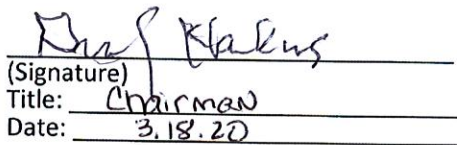 (Signature)
Title: Chairman
Date: 3.18.20